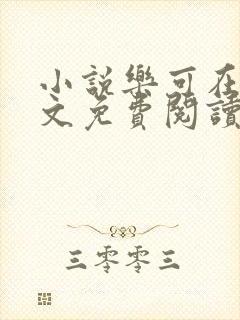 小説樂可在
文免費閱讀
三零零三